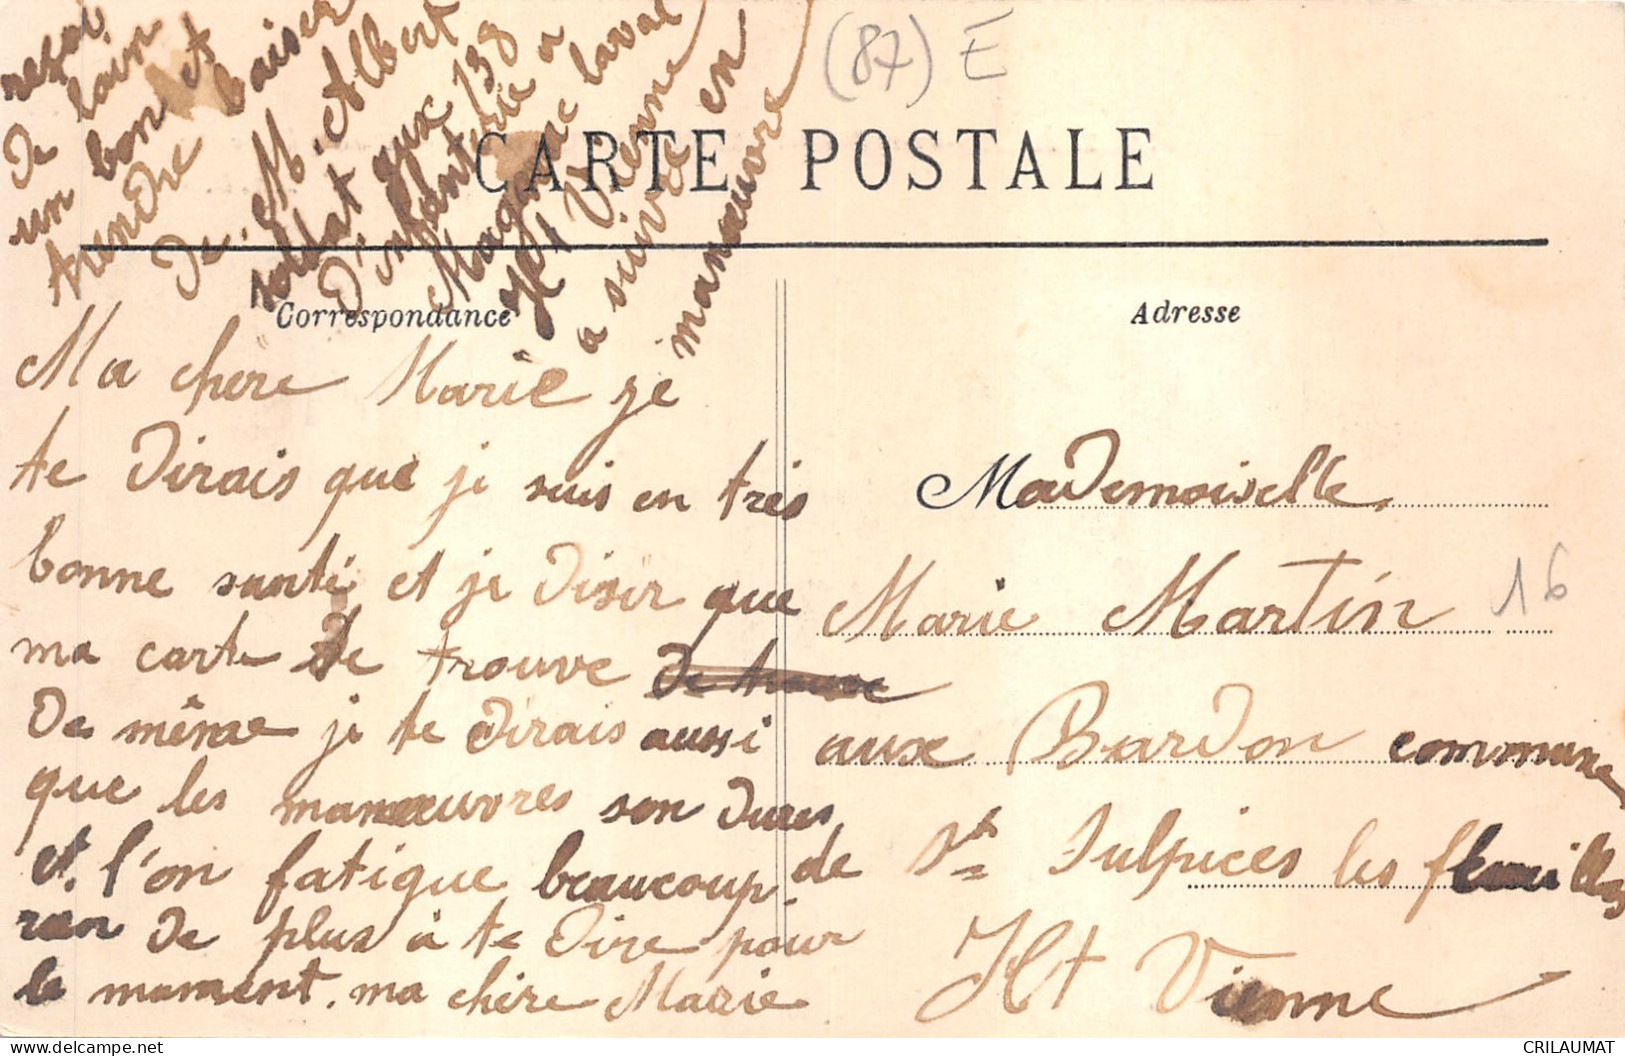 (87) E
CARTE POSTALE
Correspondance
Adresse
Ma chere Marie je
te dirais que je suis en très
bonne santé et je disir que
ma carte te trouve
de même je te dirais aussi
que les manœuvres son dures
et l'on fatigue beaucoup de
rien de plus à te dire pour
le moment. ma chère Marie
resoi
de loin
un bon et
trendre baiser
de. M. Albert
soldat aux 138
d'infanterie a
Magnac laval
Ht Vienne
a suivre en
manœuvre
Mademoiselle
Marie Martin
16
aux Bardon commune
St Sulpices les feuilles
Ht Vienne
CRILAUMAT